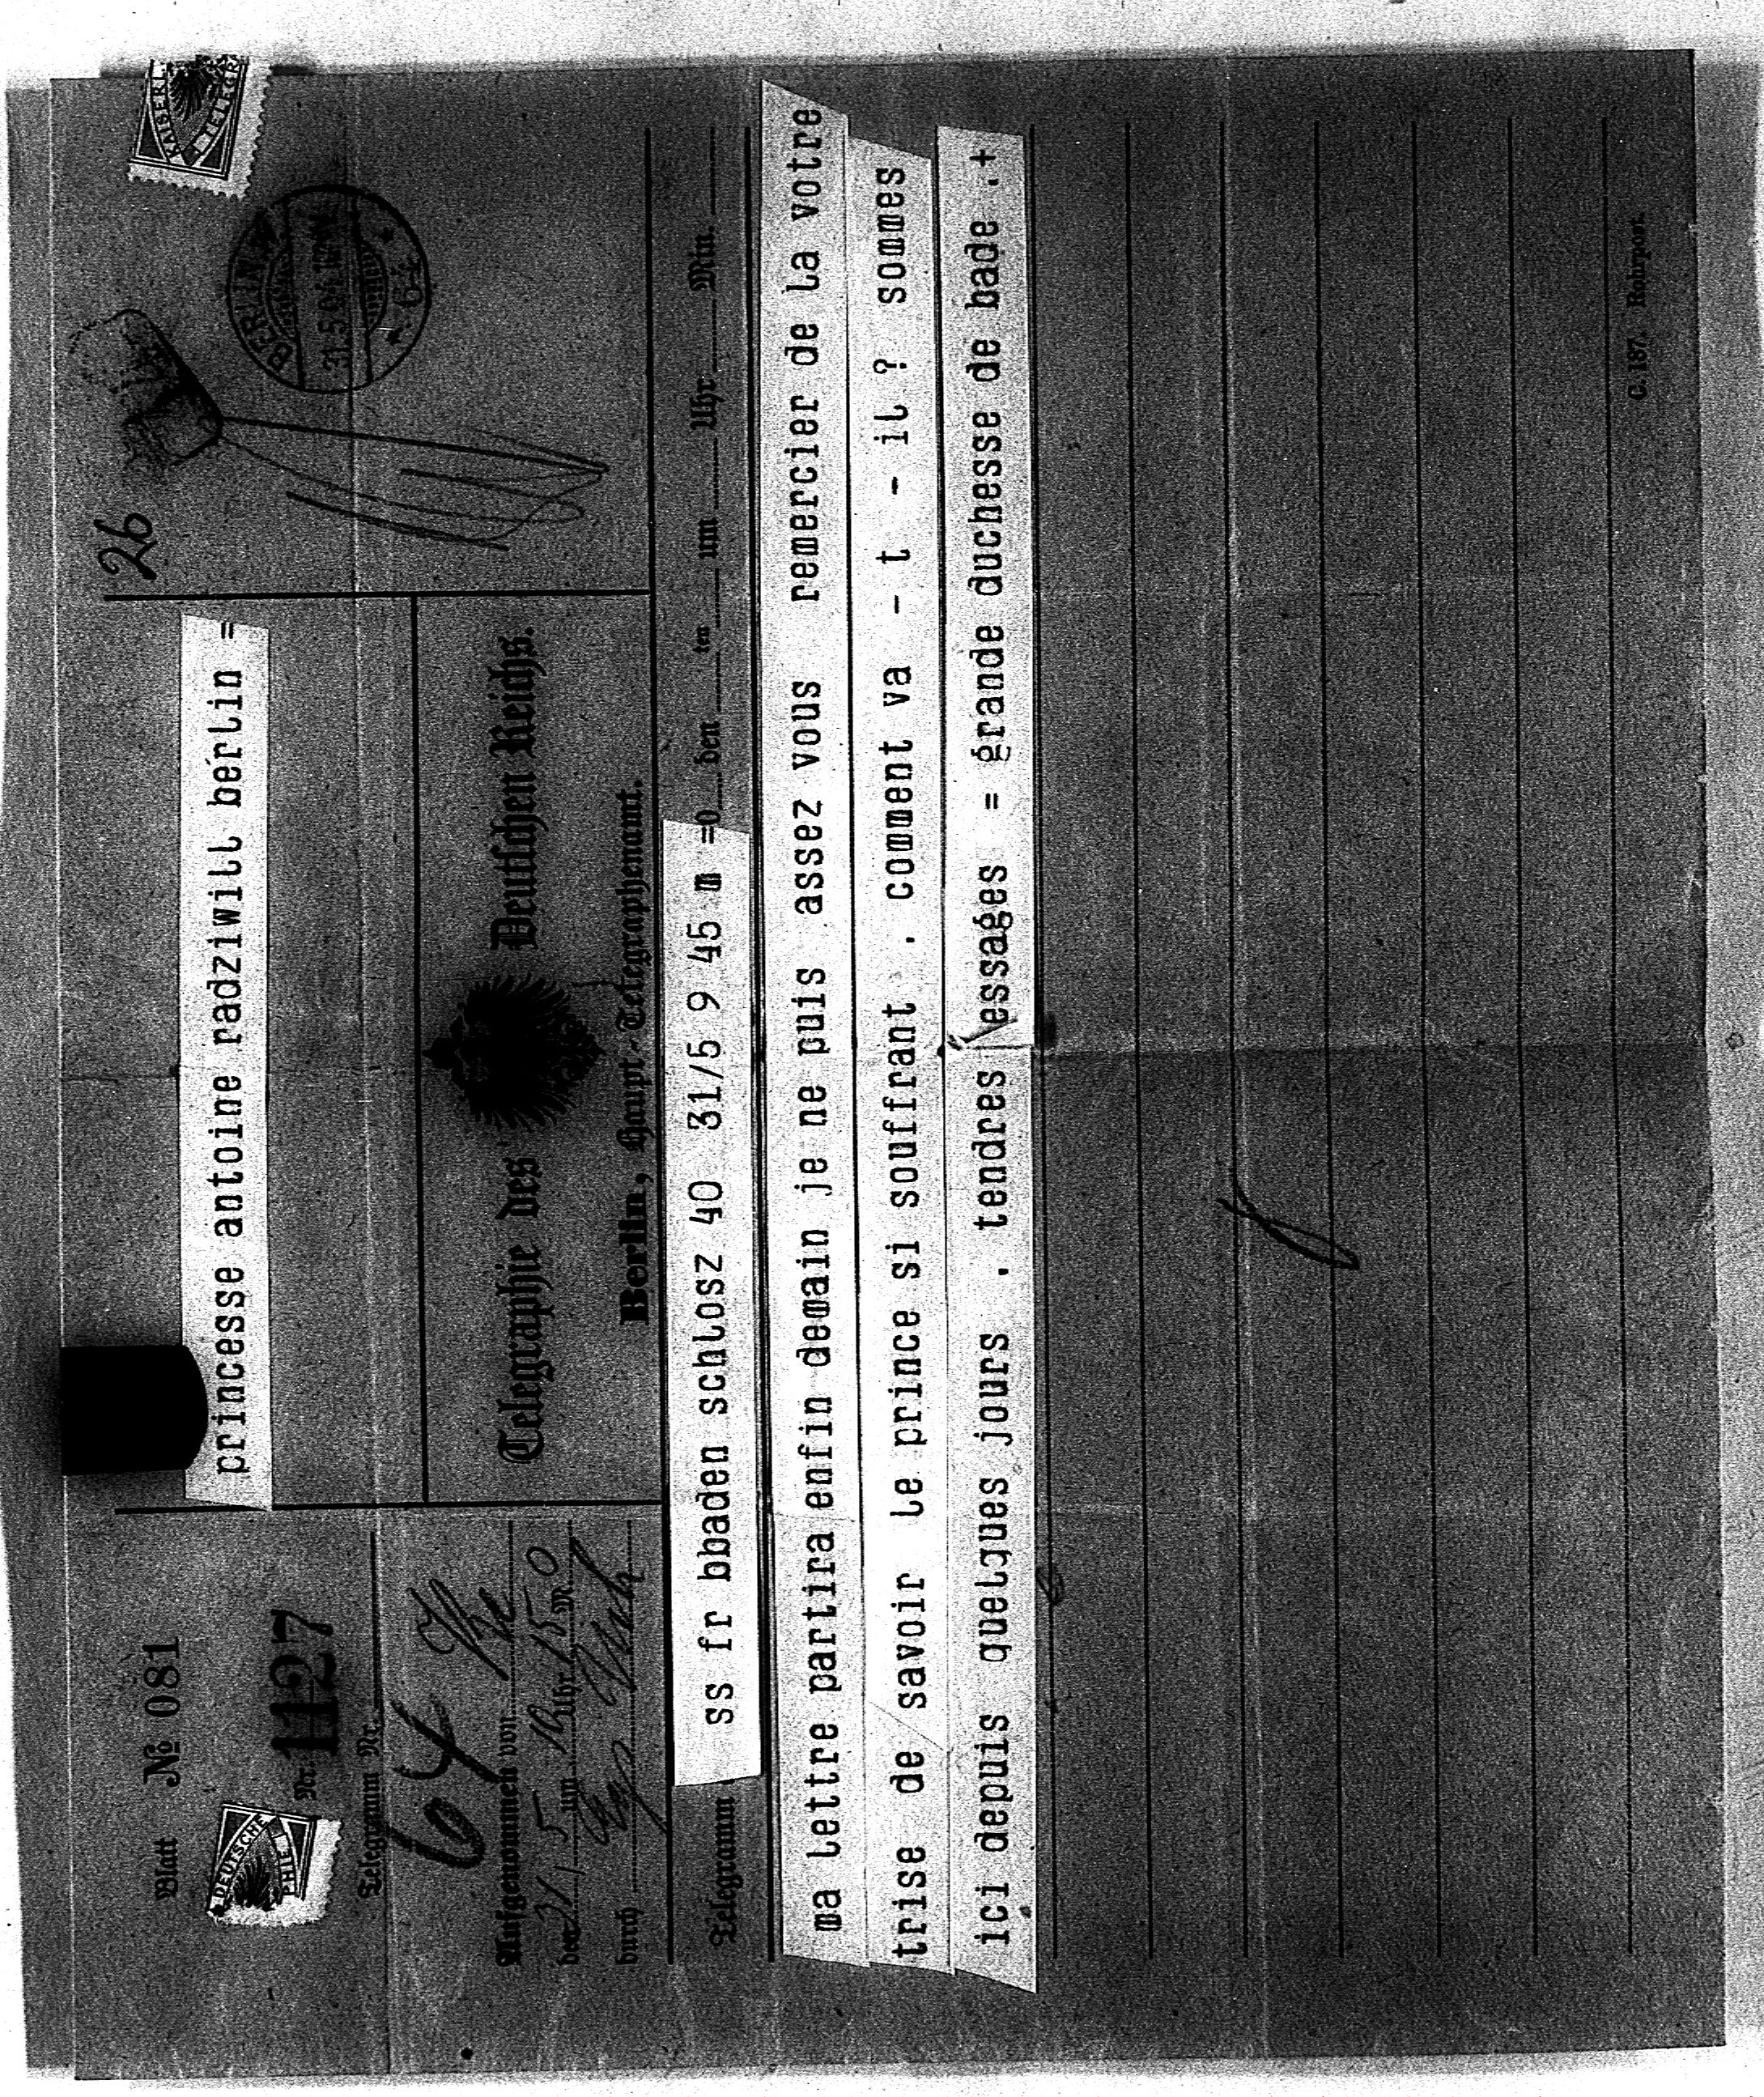 Blatt № 081
Nr. 1127
Telegramm Nr.
64
Aufgenommen von
den 31/5 um Uhr M.
durch
princesse antoine radziwill berlin =
Telegraphie des Deutschen Reichs.
Berlin, Haupt-Telegraphenamt.
26
BERLIN
31.5.04
64
KAISERL.
TELEGRA
DEUTSCHE
PHIE
Telegramm ss fr bbaden schlosz 40 31/5 9 45 m =0 den ten um Uhr Min.
ma lettre partira enfin demain je ne puis assez vous remercier de la votre
trise de savoir le prince si souffrant . comment va - t - il ? sommes
ici depuis quelques jours . tendres essages = grande duchesse de bade .+
C. 187. Rohrpost.